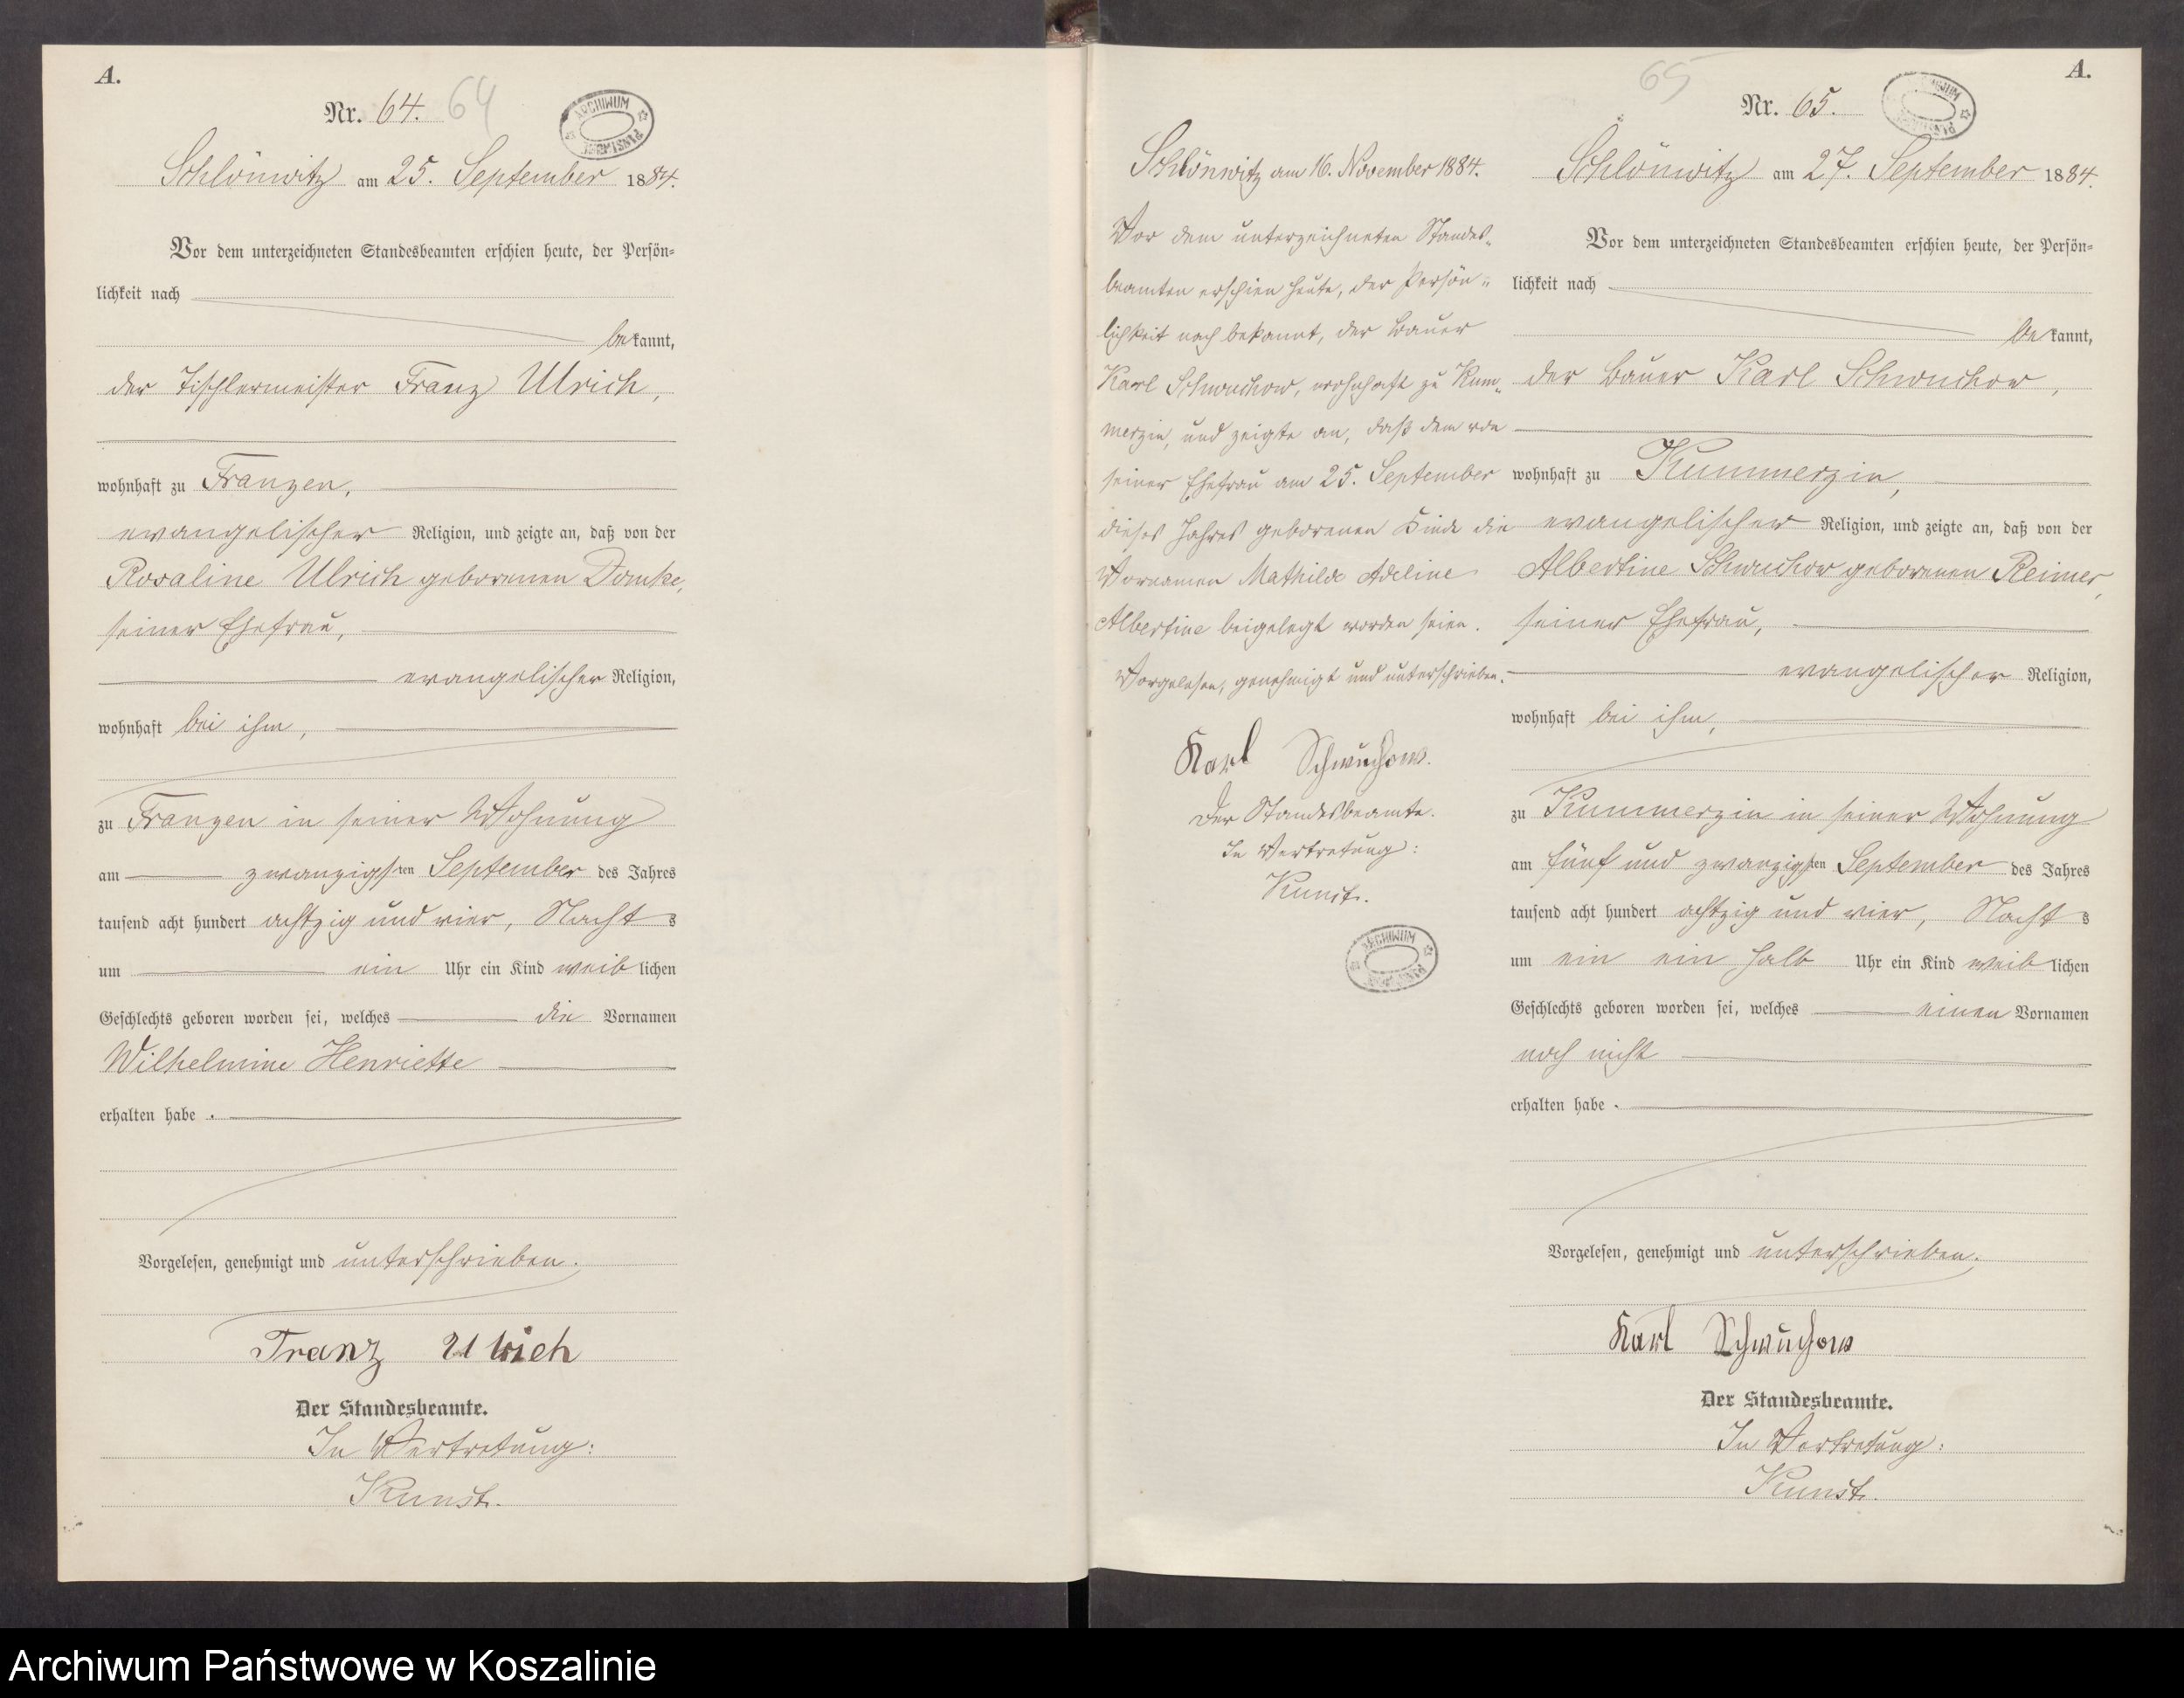 A.
Nr. 64. 64
ARCHIWUM
Schlönwitz am 25. September 1884.
Vor dem unterzeichneten Standesbeamten erschien heute, der Persön=
lichkeit nach
bekannt,
der Tischlermeister Franz Ulrich,
wohnhaft zu Franzen,
evangelischer Religion, und zeigte an, daß von der
Rosaline Ulrich geborenen Domke,
seiner Ehefrau,
evangelischer Religion,
wohnhaft bei ihm,
zu Franzen in seiner Wohnung
am zwanzigsten September des Jahres
tausend acht hundert achtzig und vier, Nachts
um ein Uhr ein Kind weiblichen
Geschlechts geboren worden sei, welches die Vornamen
Wilhelmine Henriette
erhalten habe.
Vorgelesen, genehmigt und unterschrieben.
Franz Ulrich
Der Standesbeamte.
In Vertretung:
Kunst.
Schlönwitz am 16. November 1884.
Vor dem unterzeichneten Standes=
beamten erschien heute, der Persön=
lichkeit nach bekannt, der Bauer
Karl Schwuchow, wohnhaft zu Kum=
merzin, und zeigte an, daß dem von
seiner Ehefrau am 25. September
dieses Jahres geborenen Kinde die
Vornamen Mathilde Adeline
Albertine beigelegt worden seien.
Vorgelesen, genehmigt und unterschrieben.
Karl Schwuchow.
Der Standesbeamte.
In Vertretung:
Kunst.
ARCHIWUM
65
A.
Nr. 65.
Schlönwitz am 27. September 1884.
Vor dem unterzeichneten Standesbeamten erschien heute, der Persön=
lichkeit nach
bekannt,
der Bauer Karl Schwuchow,
wohnhaft zu Kummerzin,
evangelischer Religion, und zeigte an, daß von der
Albertine Schwuchow geborenen Reimer,
seiner Ehefrau,
evangelischer Religion,
wohnhaft bei ihm,
zu Kummerzin in seiner Wohnung
am fünf und zwanzigsten September des Jahres
tausend acht hundert achtzig und vier, Nachts
um ein ein halb Uhr ein Kind weiblichen
Geschlechts geboren worden sei, welches einen Vornamen
noch nicht
erhalten habe.
Vorgelesen, genehmigt und unterschrieben.
Karl Schwuchow
Der Standesbeamte.
In Vertretung:
Kunst.
Archiwum Państwowe w Koszalinie